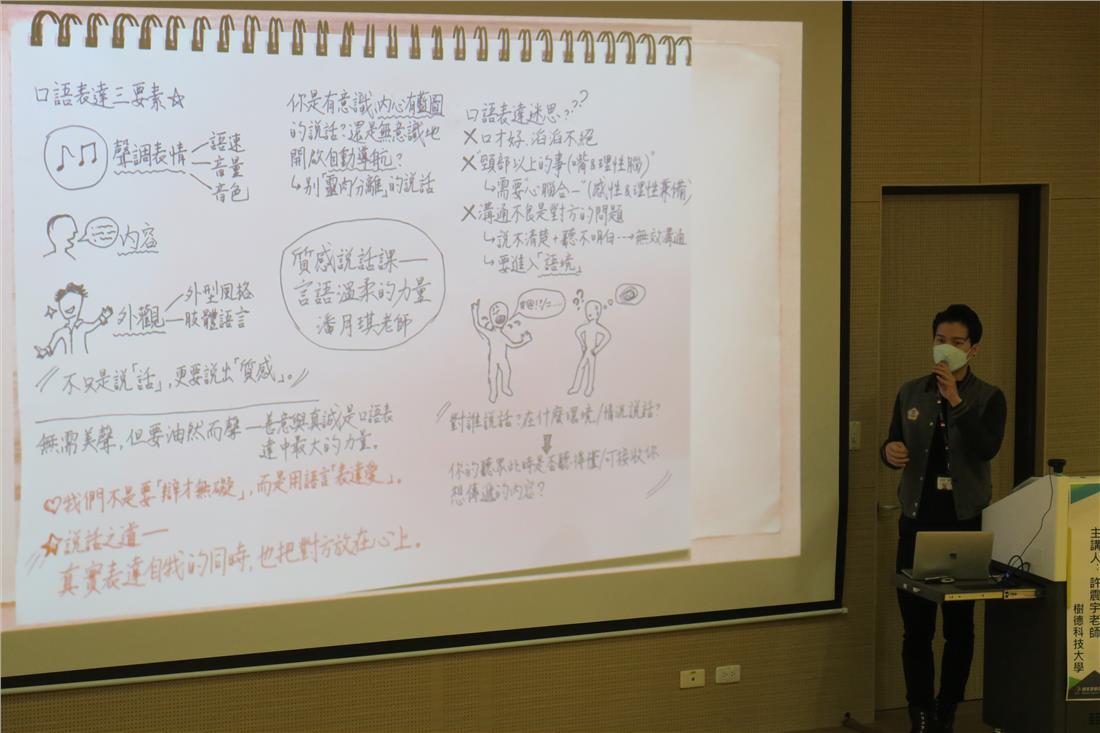 口語表達三要素☆
聲調表情
語速
音量
音色
內容
外觀
外型風格
肢體語言
不只是說「話」,更要說出「質感」。
無需美聲,但要油然而聲—善意與真誠是口語表
達中最大的力量。
♡我們不是要「辯才無礙」,而是用語言「表達愛」。
☆說話之道—
真實表達自我的同時,也把對方放在心上。
你是有意識、內心有藍圖
的說話?還是無意識地
開啟自動導航?
↳別「靈肉分離」的說話
質感說話課—
言語溫柔的力量
潘月琪老師
口語表達迷思???
X口才好、滔滔不絕
X"頸部以上的事(嘴&理性腦)"
↳需要"心腦合一"(感性&理性兼備)
X溝通不良是對方的問題
↳說不清楚+聽不明白→無效溝通
↳要進入「語境」
#@!%=...
??
對誰說話?在什麼環境/情況說話?
你的聽眾此時是否聽得懂/可接收你
想傳遞的內容?
主講人:許震宇老師
樹德科技大學